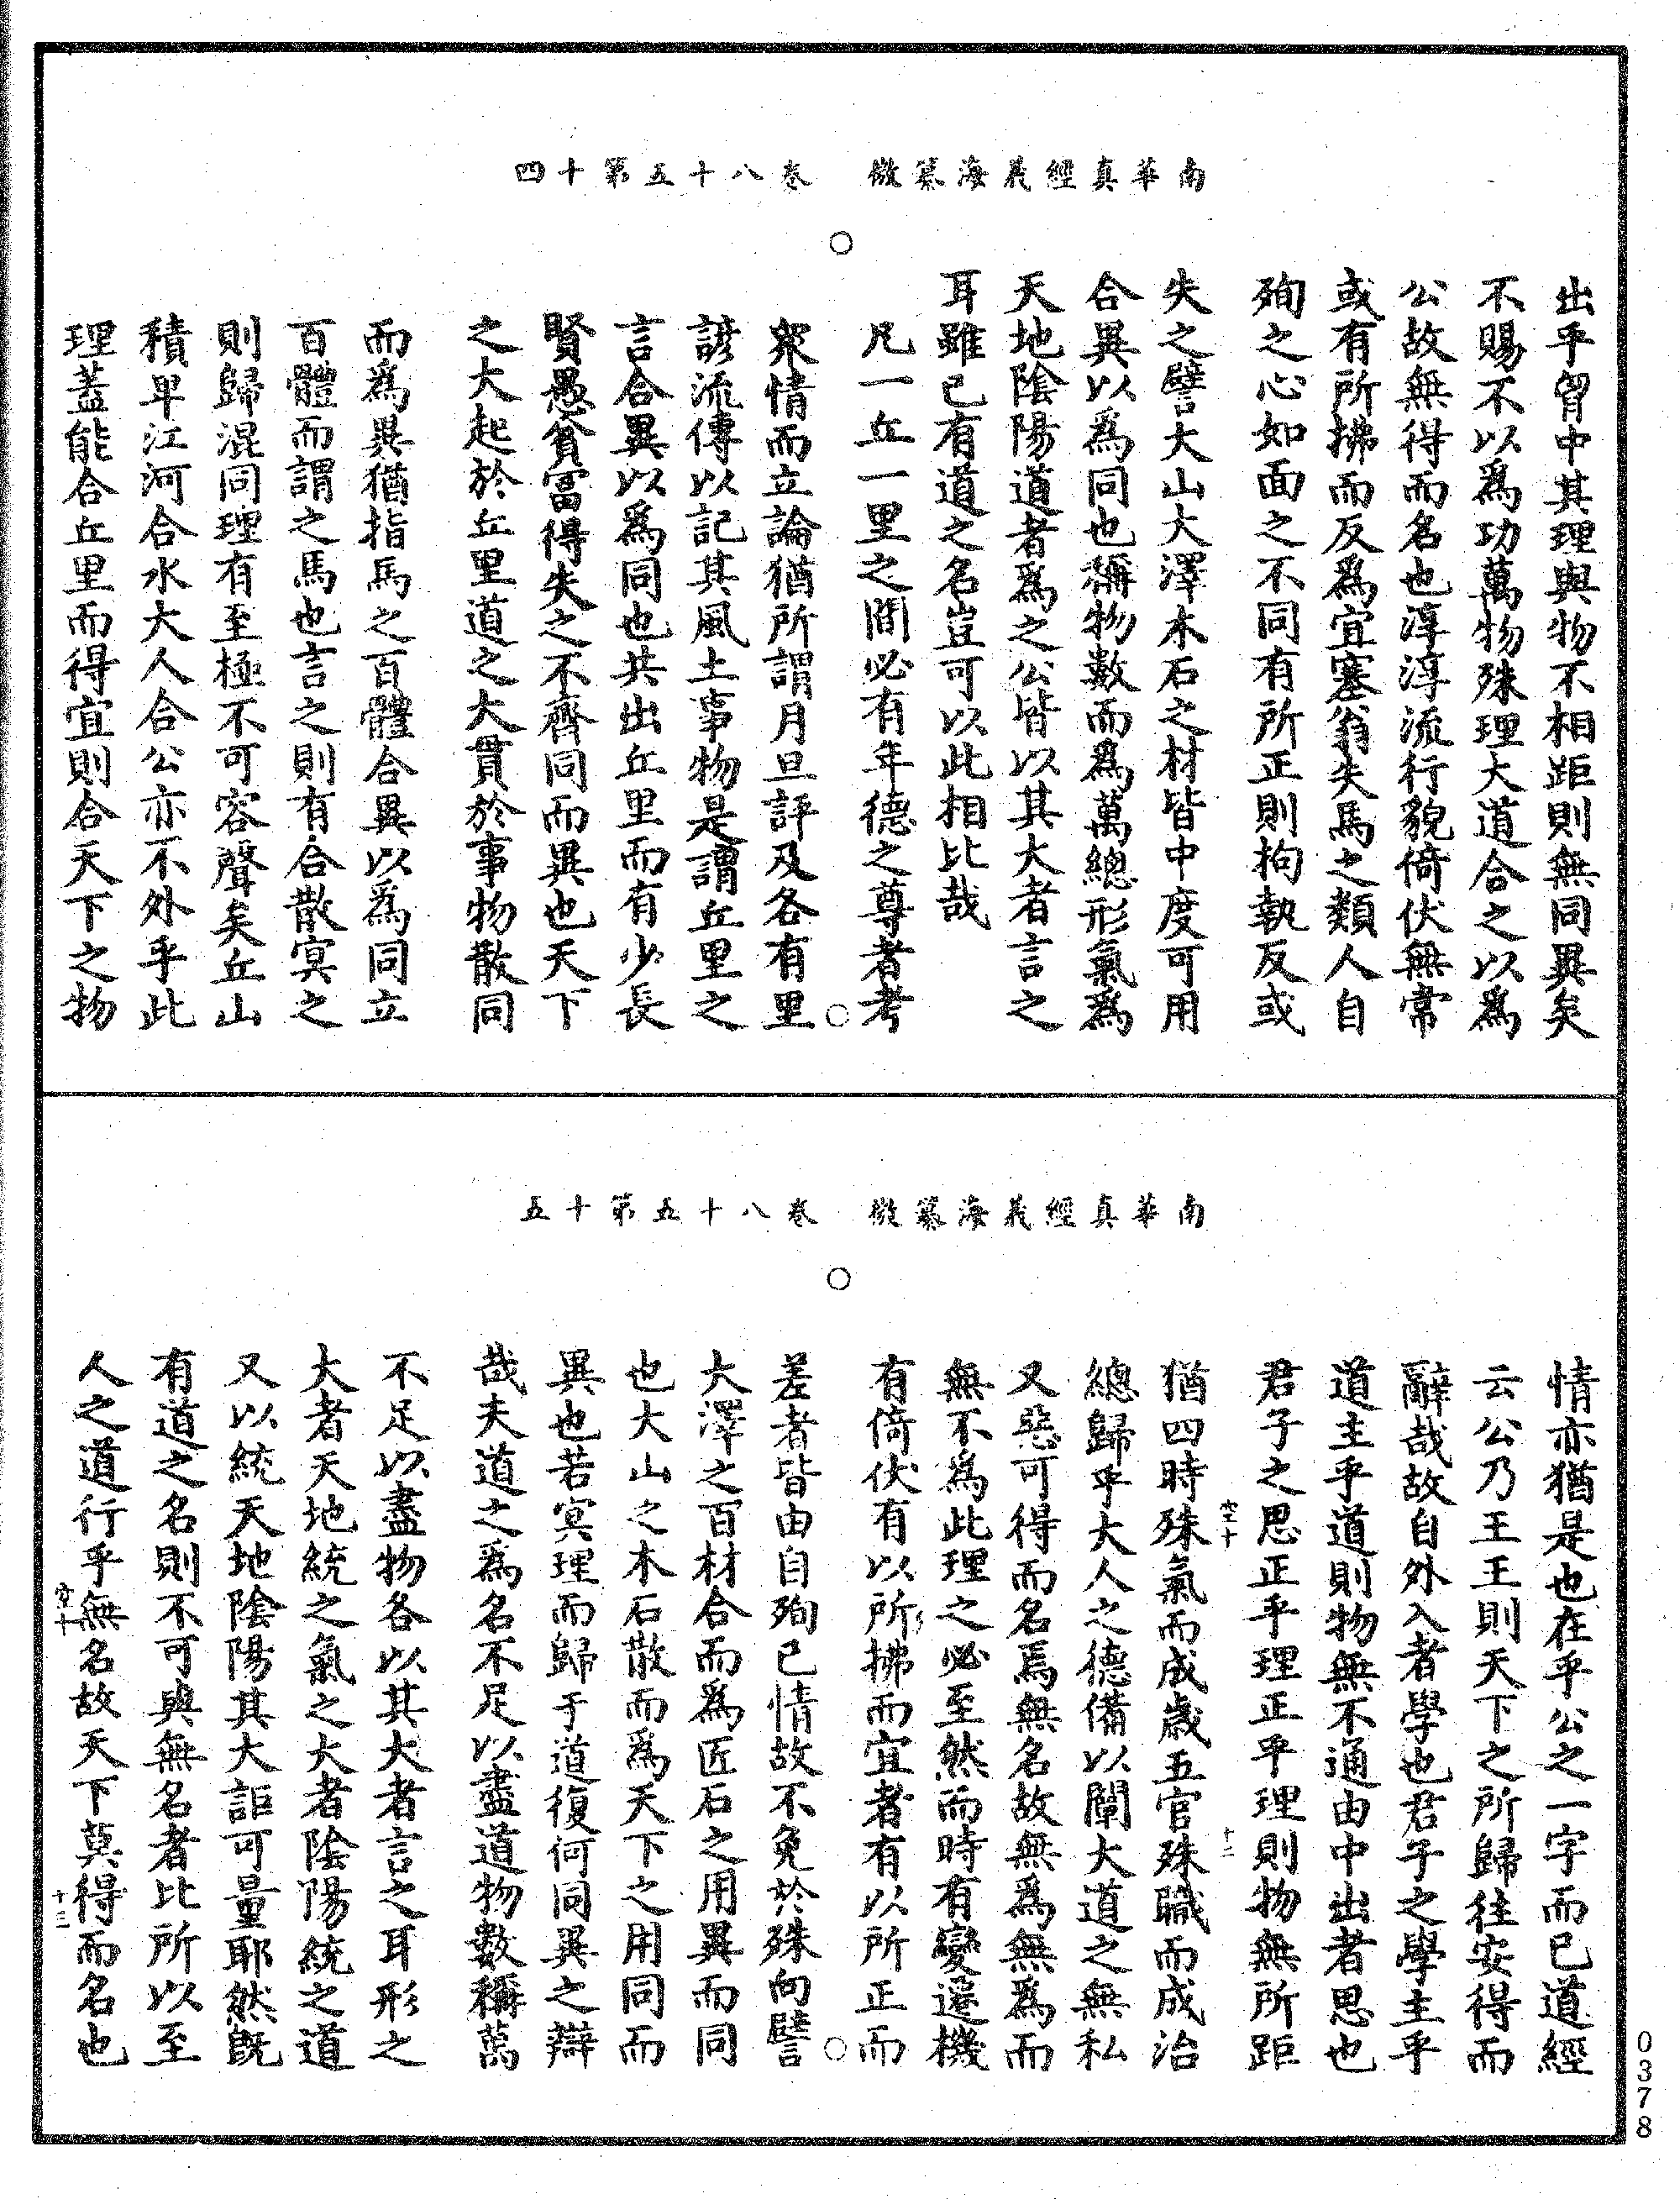 南華真經義海纂微　卷八十五第十四
出乎胷中其理與物不相距則無同異矣
不賜不以爲功萬物殊理大道合之以爲
公故無得而名也淳淳流行貌倚伏無常
或有所拂而反爲宜塞翁失馬之類人自
殉之心如面之不同有所正則拘執反或
失之譬大山大澤木石之材皆中度可用
合異以爲同也稱物數而爲萬總形氣爲
天地陰陽道者爲之公皆以其大者言之
耳雖已有道之名豈可以此相比哉
凡一丘一里之間必有年德之尊者考
衆情而立論猶所謂月旦評及各有里
諺流傳以記其風土事物是謂丘里之
言合異以爲同也共出丘里而有少長
賢愚貧富得失之不齊同而異也天下
之大起於丘里道之大貫於事物散同
而爲異猶指馬之百體合異以爲同立
百體而謂之馬也言之則有合散冥之
則歸混同理有至極不可容聲矣丘山
積卑江河合水大人合公亦不外乎此
理蓋能合丘里而得宜則合天下之物
南華真經義海纂微　卷八十五第十五
情亦猶是也在乎公之一字而已道經
云公乃王王則天下之所歸往安得而
辭哉故自外入者學也君子之學主乎
道主乎道則物無不通由中出者思也
君子之思正乎理正乎理則物無所距
猶四時殊氣而成歲五官殊職而成治
總歸乎大人之德備以闡大道之無私
又惡可得而名焉無名故無爲無爲而
無不爲此理之必至然而時有變遷機
有倚伏有以所拂而宜者有以所正而
差者皆由自殉已情故不免於殊向譬
大澤之百材合而爲匠石之用異而同
也大山之木石散而爲天下之用同而
異也若冥理而歸于道復何同異之辯
哉夫道之爲名不足以盡道物數稱萬
不足以盡物各以其大者言之耳形之
大者天地統之氣之大者陰陽統之道
又以統天地陰陽其大詎可量耶然旣
有道之名則不可與無名者比所以至
人之道行乎無名故天下莫得而名也
十二
十三
0378